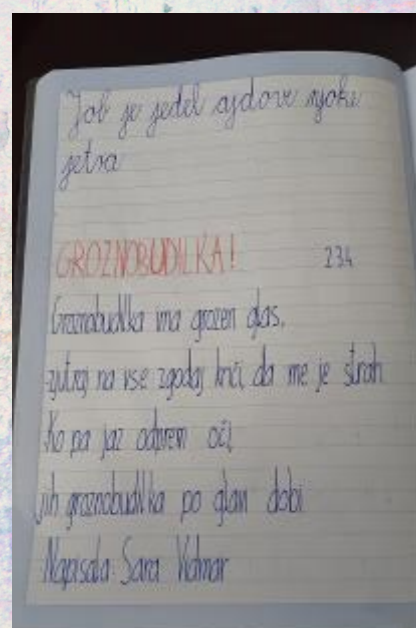 Job je jedel ajdove njoke
jetra
GROZNOBUDILKA! 23.4
Groznobudilka ima grozen glas,
zjutraj na vse zgodaj kriči, da me je strah.
Ko pa jaz odprem oči,
jih groznobudilka po glavi dobi.
Napisala: Sara Vidmar